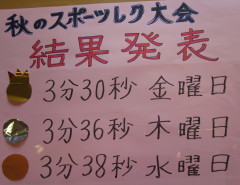 秋のスポーツレク大会
結果発表
3分30秒 金曜日
3分36秒 木曜日
3分38秒 水曜日